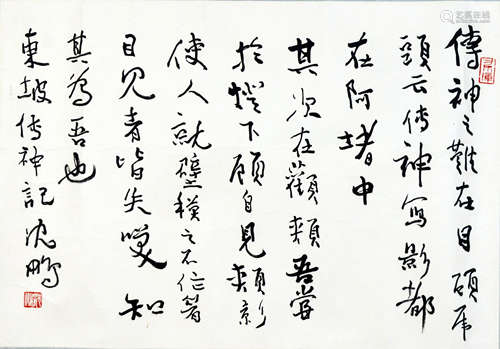 傳神之難在目頋虎
頭云傳神寫影都
在阿堵中
其次在顴頰吾嘗
於燈下顧自見頰影
使人就壁模之不作眉
目見者皆失笑知
其為吾也
東坡傳神記 沈鹏